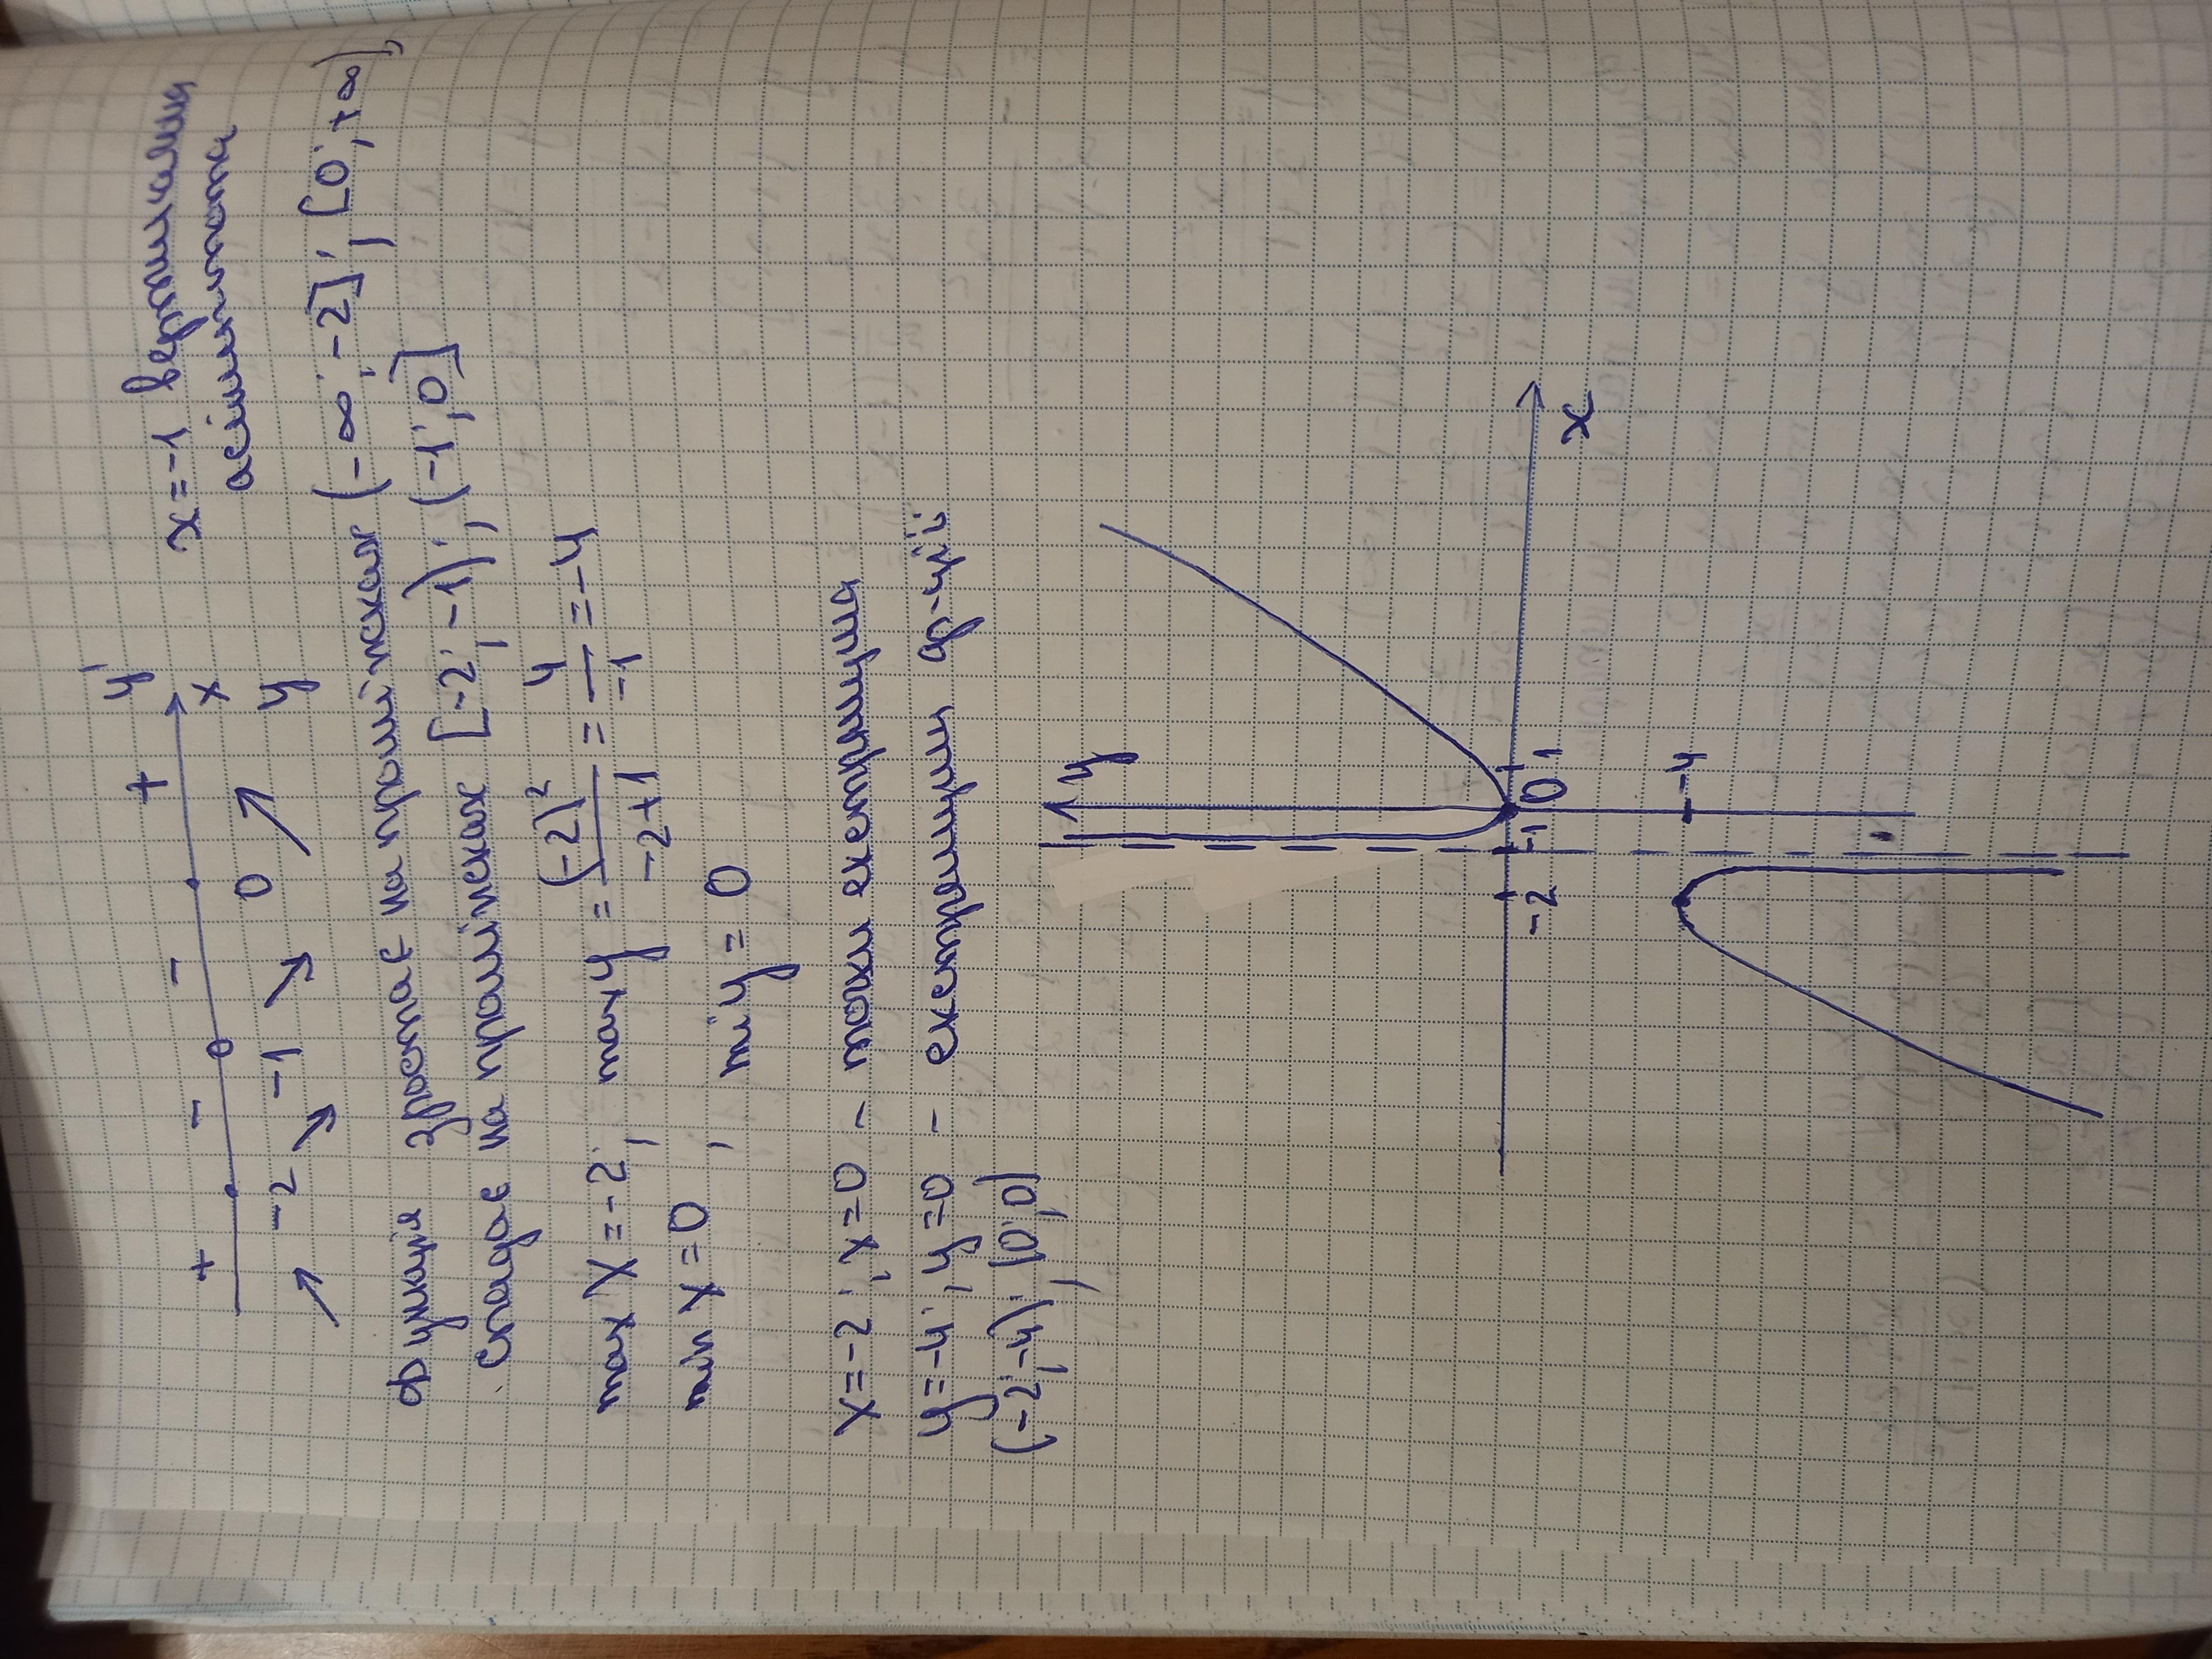 + - - + y'
x
-2 -1 0 y
x=-1 вертикальна
асімптота
Функція зростає на проміжках (-∞; -2]; [0; +∞),
спадає на проміжках [-2; -1); (-1; 0]
max x = -2; max y = (-2)²/(-2+1) = 4/-1 = -4
min x = 0, mi y = 0
x=-2; x=0 - точки екстремума
y=-4; y=0 - екстремуми ф-ції.
(-2;-4); (0;0)
y
-2 -1 0 1 x
-4